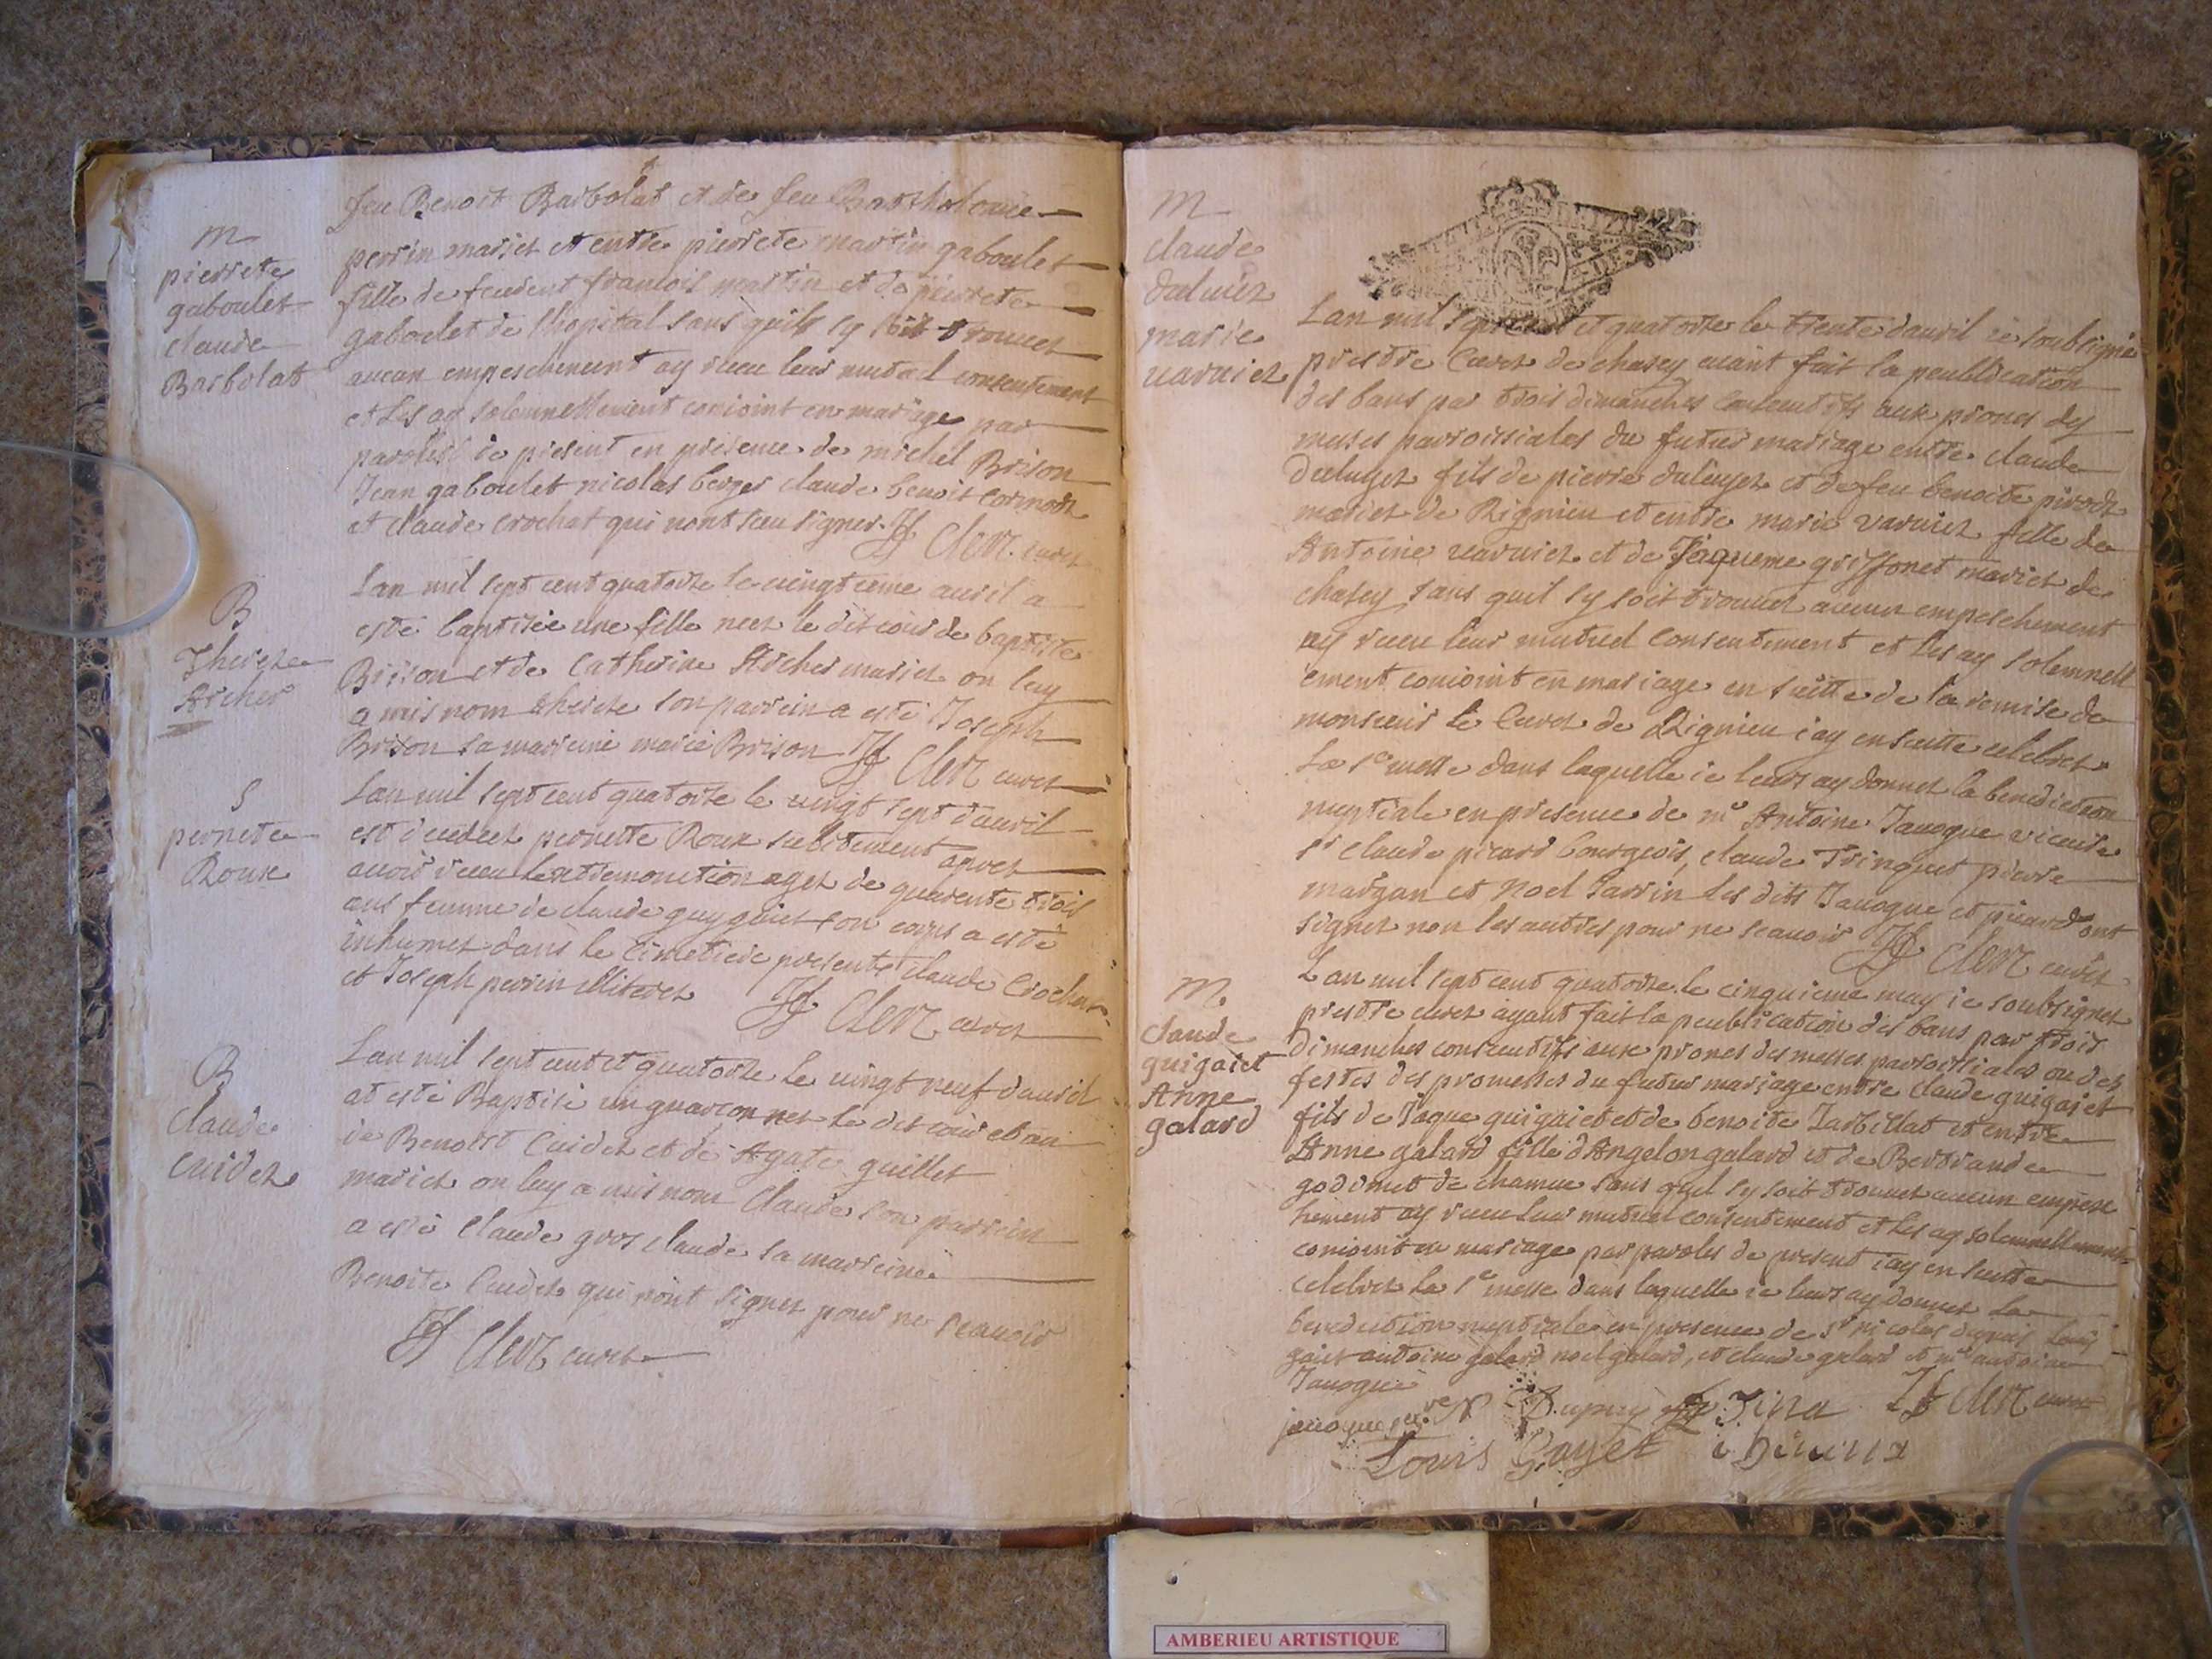 feu Benoit Barbolat et de feu Bartholomie
m
pierrete
gaboulet
claude
Barbolat
perrin mariet et entre pierrete martin gaboulet
fille de feudent francois martin et de pierrete
gaboulet de lhopital sans quils sy soit trouvet
aucun empeschement ay receu leur mutuel consentement
et les ay solemnellement conioint en mariage par
paroles de present en presence de michel Brison
Jean gaboulet nicolas berger claude benoit cormort
et claude crochat qui nont sceu signer. Clerc curet
B
Therese
Archer
Lan mil sept cent quatorze le vingtieme auril a
esté baptisée une fille neet le dit iour de baptiste
Brison et de Catherine Archer mariet on luy
a mis nom therese son parrein a esté Joseph
Brison sa marreine marie Brison Clerc curet
S
pernete
Roux
Lan mil sept cent quatorze le vingt sept dauril
est decedeet pernette Roux subitement apret
auoir receu lextremonction aget de quarente trois
ans femme de claude guygaiet son corps a esté
inhumet dans le Cimetiere presents claude Crochat
et Joseph perrin illiteret Clerc curet
B
claude
cuidet
Lan mil sept cent et quatorze le vingt neuf dauril
at esté Baptisé un guarcon net le dit iour et an
de Benoist Cuidet et de Agate guillet
mariet on luy a mis nom Claude son parrein
a esté Claude gros claude sa marreine
Benoite Cuidet qui nont signet pour ne scauoir
Clerc curet
m
claude
duluiet
marie
varuiet
Lan mil sept cent et quatorze le trente dauril ie soubsigné
prestre Curet de chasey aiant fait la peublication
des bans par trois dimanches consecutifs aux prones des
messes parroissiales du futur mariage entre claude
duluyet fils de pierre duluyet et de feu benoite pirodt
mariet de Rignieu et entre marie varuiet fille de
Antoine varuiet et de Jaqueme griffonet mariet de
chasey sans quil sy soit trouuet aucun empeschement
ay receu leur mutuel consentement et les ay solemnell
ement conioint en mariage en suitte de la remise de
monsieur le Curet de Rignieu iay ensuitte celebret
La Ste messe dans laquelle ie leurs ay donnet la benediction
nuptiale en presence de mr Antoine Jauogue vicaire
sr claude picard bourgeois, claude Trinquet pierre
margan et Noel Jarrin les dits Jauogue et picard ont
signet non les autres pour ne scauoir Clerc curet
m
claude
guigaiet
Anne
galard
Lan mil sept cent quatorze le cinquieme may ie soubsignet
prestre curet ayant fait la peublication des bans par trois
Dimanches consecutifs aux prones des messes parroissiales ou des
festes des promesses du futur mariage entre claude guigaiet
fils de Jaque guigaiet et de benoite Jarbillat et entre
Anne galard fille dAngelon galard et de Bertrande
godimet de chamue sans quil sy soit trouuet aucun empesc
hement ay receu leur mutuel consentement et les ay solemnellement
conioint en mariage par paroles de present iay ensuitte
celebret la Ste messe dans laquelle ie leurs ay donnet la
benediction nuptiale en presence de sr nicolas dupuis Louis
gaiet antoine galard noel galard, et claude galard et mr antoine
Jauogue
jauogue vre N Dupuy Clerc curet
Louis Gayet
AMBERIEU ARTISTIQUE